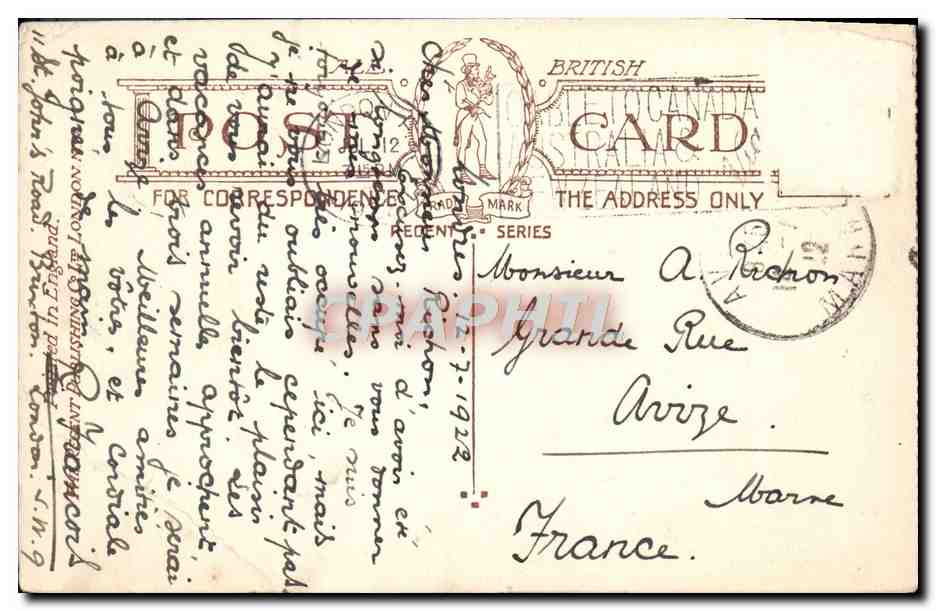 BRITISH
POST CARD
FOR CORRESPONDENCE THE ADDRESS ONLY
TRADE MARK
REGENT SERIES
CABLE TO CANADA
AUSTRALIA &
Londres. 12-7-1922
Cher Monsieur Richon,
Excusez-moi d'avoir été
si longtemps sans vous donner
de mes nouvelles. Je suis
très occupé, ici, mais
je ne vous oubliais cependant pas.
J'aurai du reste le plaisir
de vous revoir bientôt. Les
vacances annuelles approchent
et dans trois semaines je serai
à Avize. Meilleures amitiés
à tous les vôtres, et cordiale
poignée de main. François
11 St John's Road. Brixton. London. S.W.9
REGENT PUBLISHING Co LTD LONDON N
Printed in England
Monsieur A Richon
Grande Rue
Avize.
Marne
France.
MARNE
CPARAMA